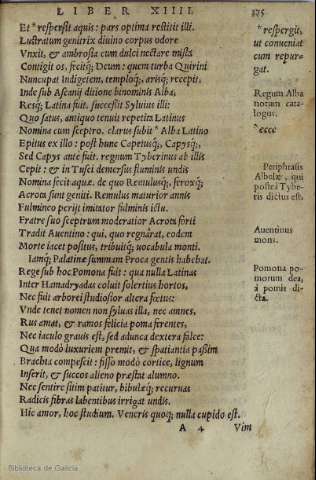 LIBER XIIII.
375
Et respersit aquis: pars optima restitit illi.
Lustratum genitrix diuino corpus odore
Vnxit, & ambrosia cum dulci nectare mista
Contigit os, fecitq; Deum: quem turba Quirini
Nuncupat Indigetem, temploq;, arisq; recepit.
Inde sub Ascanij ditione binominis Alba,
Resq; Latina fuit. successit Syluius illi:
Quo satus, antiquo tenuit repetita Latinus
Nomina cum sceptro. clarus subit * Alba Latino
Epitus ex illo: post hunc Capetusq;, Capysq;,
Sed Capys ante fuit. regnum Tyberinus ab illis
Cepit: & in Tusci demersus fluminis undis
Nomina fecit aquæ. de quo Remulusq;, feroxq;
Acrota sunt geniti. Remulus maturior annis
Fulmineo perijt imitator fulminis ictu.
Fratre suo sceptrum moderatior Acrota forti
Tradit Auentino: qui, quo regnârat, eodem
Morte iacet positus, tribuitq; uocabula monti.
Iamq; Palatinæ summam Proca gentis habebat.
Rege sub hoc Pomona fuit: qua nulla Latinas
Inter Hamadryadas coluit solertius hortos,
Nec fuit arborei studiosior altera foetus:
Vnde tenet nomen non syluas illa, nec amnes,
Rus amat, & ramos felicia poma ferentes,
Nec iaculo grauis est, sed adunca dextera falce:
Qua modò luxuriem premit, & spatiantia passim
Brachia compescit: fisso modò cortice, lignum
Inserit, & succos alieno præstat alumno.
Nec sentire sitim patitur, bibulæq; recuruas
Radicis fibras labentibus irrigat undis.
Hic amor, hoc studium. Veneris quoq; nulla cupido est.
A 4 Vim
* respergit,
ut conueniat
cum repur-
gat.
Regum Alba
norum cata-
logus.
* ecce
Periphrasis
Albulæ, qui
postea Tybe-
ris dictus est.
Auentinus
mons.
Pomona po-
morum dea,
à pomis di-
cta.
Biblioteca de Galicia